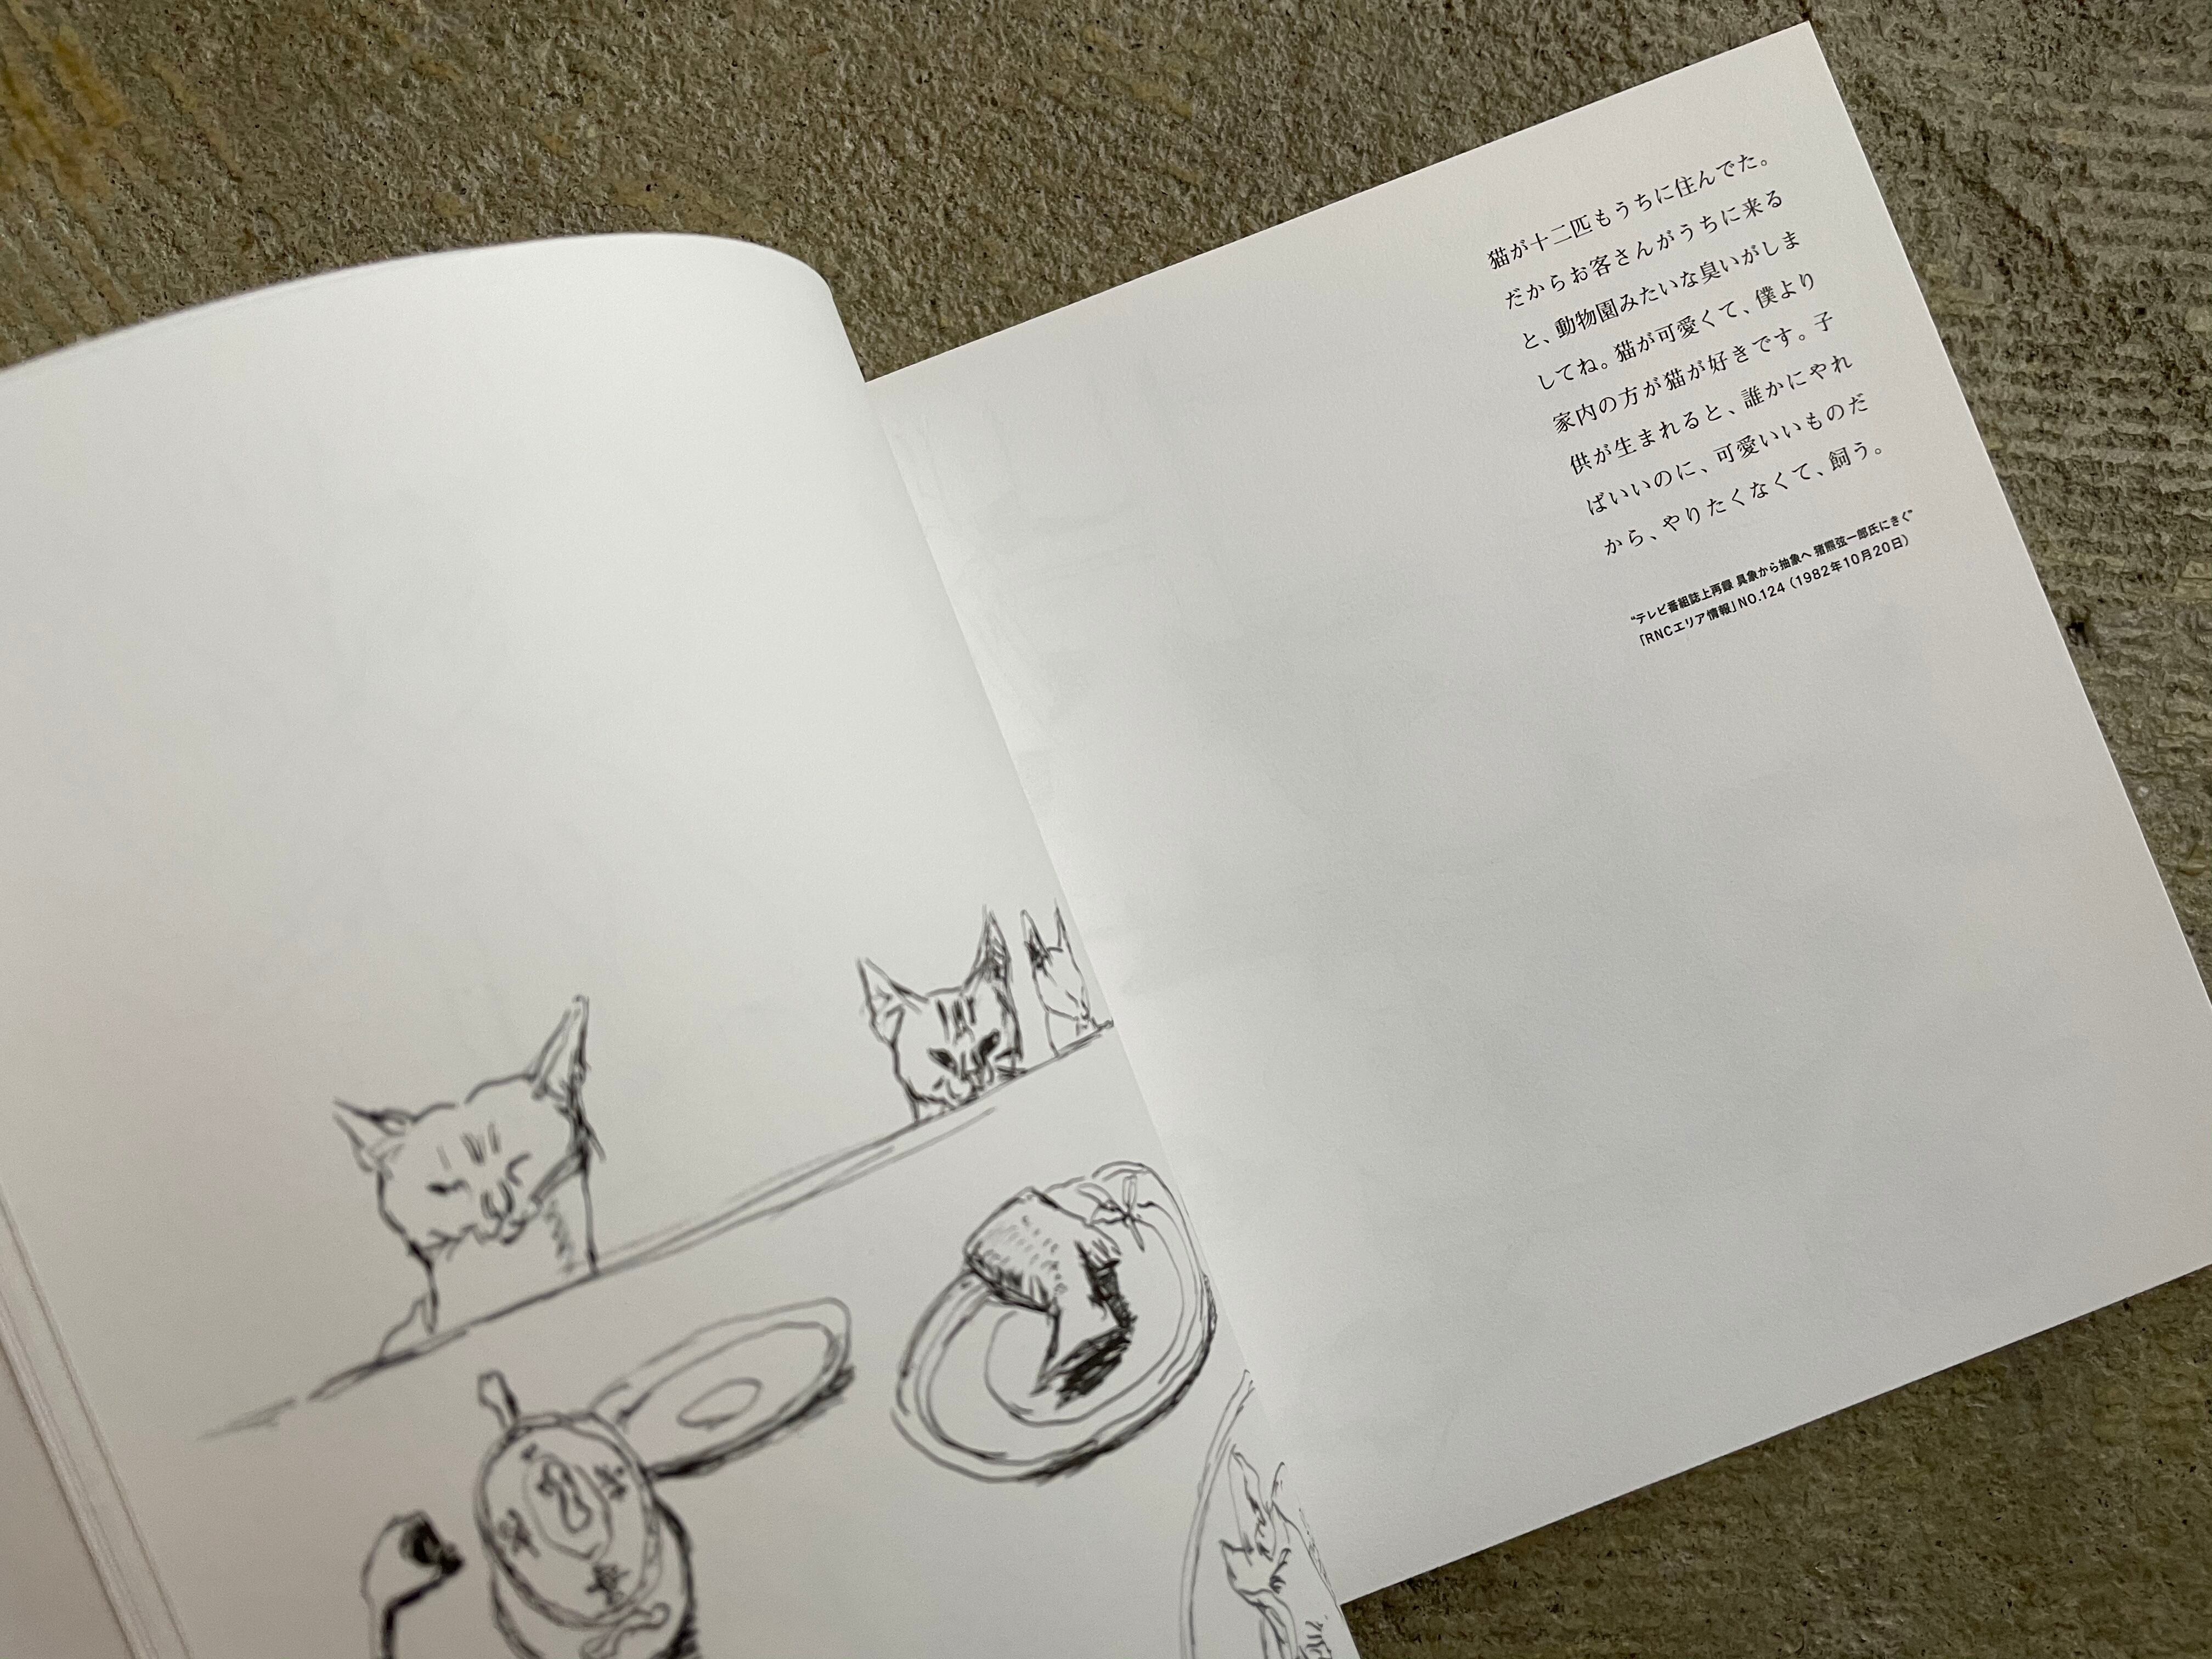 猫が十二匹もうちに住んでた。
だからお客さんがうちに来る
と、動物園みたいな臭いがしま
してね。猫が可愛くて、僕より
家内の方が猫が好きです。子
供が生まれると、誰かにやれ
ばいいのに、可愛いいものだ
から、やりたくなくて、飼う。
“テレビ番組誌上再録 具象から抽象へ 猪熊弦一郎氏にきく”
「RNCエリア情報」NO.124(1982年10月20日)